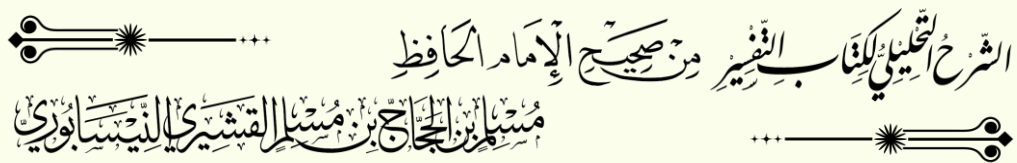 الشَّرْحُ التَّحْلِيلِيُّ لِكِتَابِ التَّفْسِيْرِ مِنْ صَحِيْحِ الْإِمَامِ الحَافِظِ
مُسْلِمِ بْنِ الحَجَّاجِ بْنِ مُسْلِمٍ القُشَيْرِيِّ النَّيْسَابُوْرِيِّ